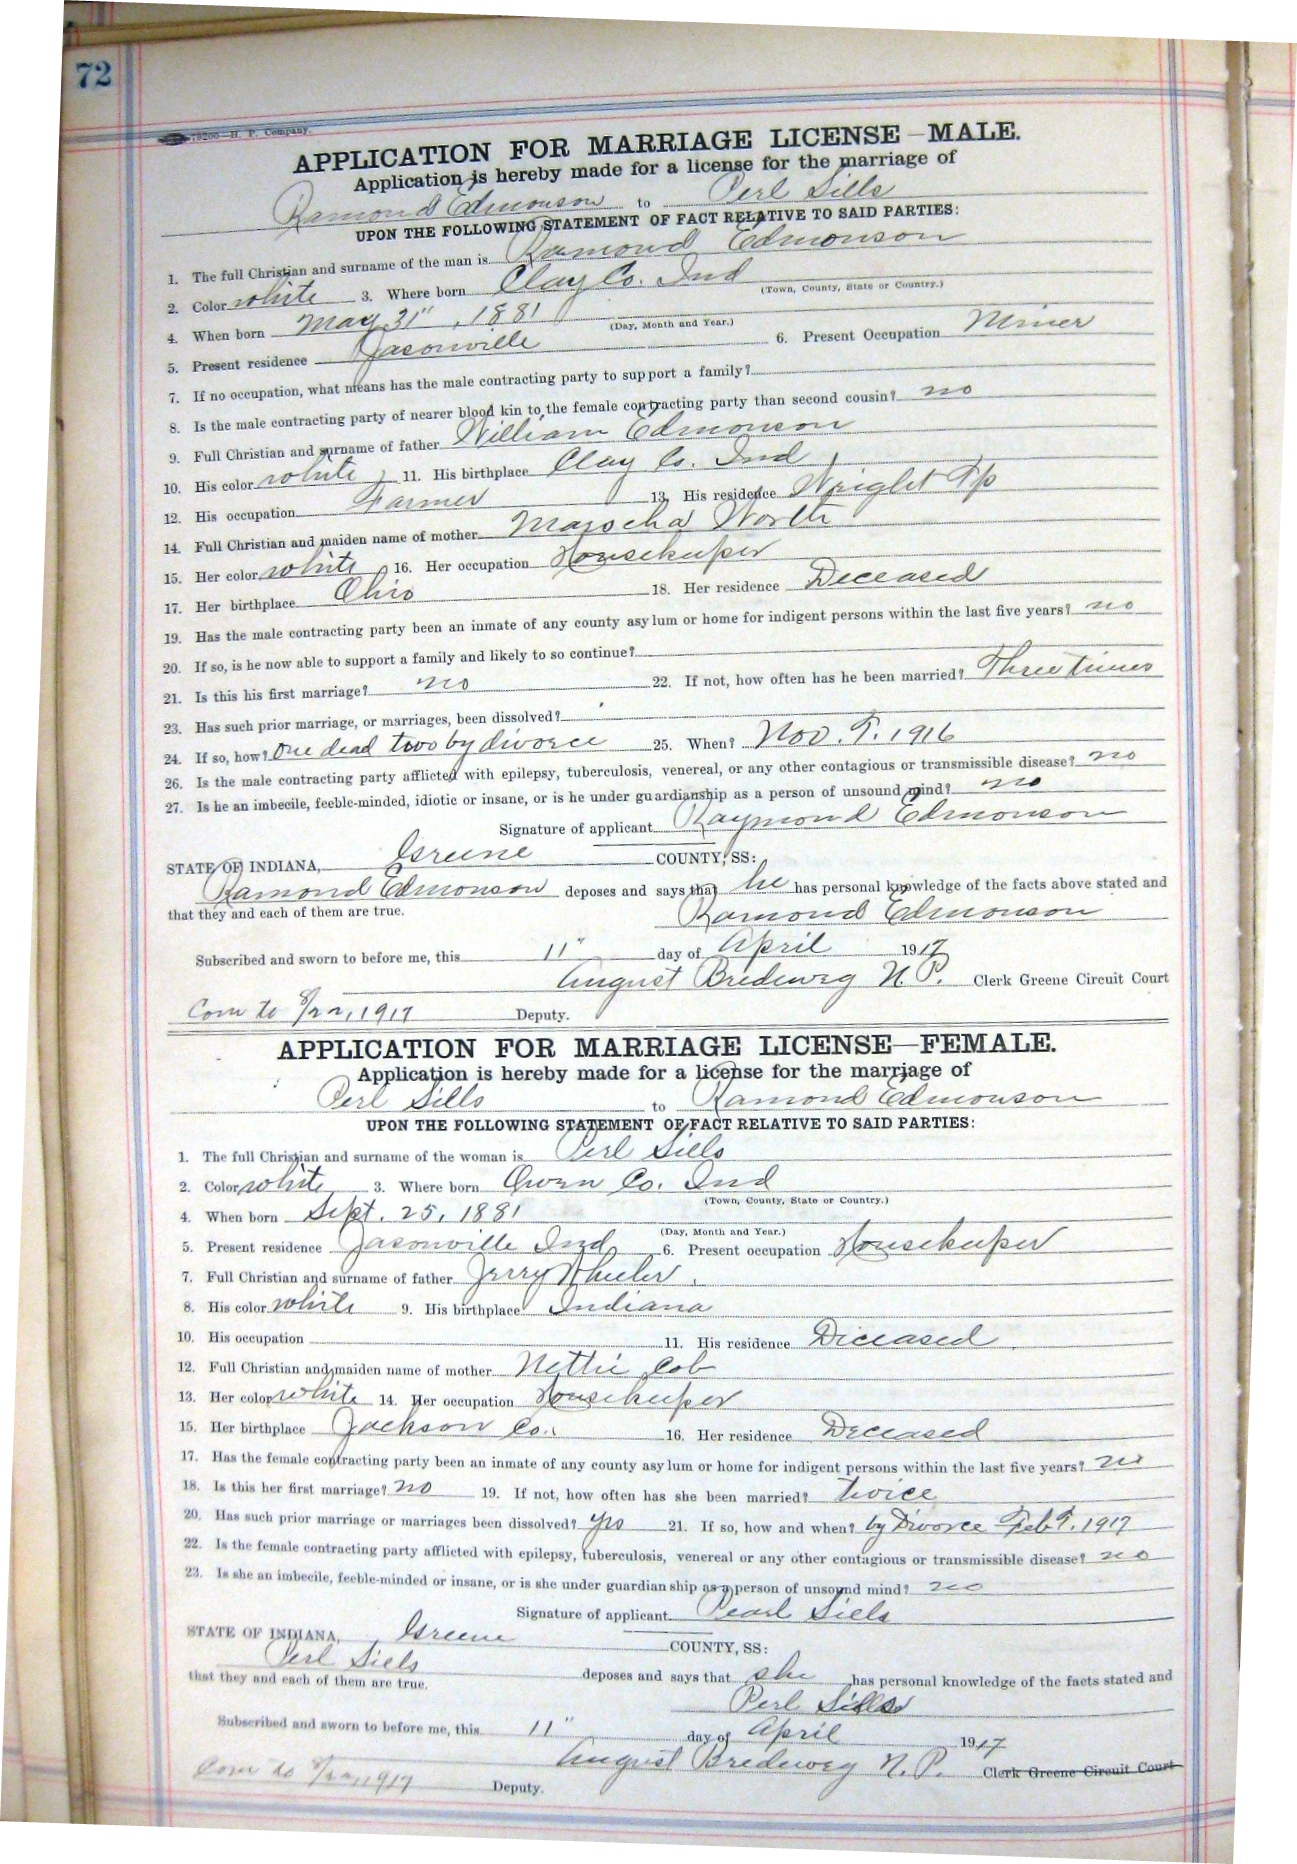 72
79200—H. P. Company.
APPLICATION FOR MARRIAGE LICENSE—MALE.
Application is hereby made for a license for the marriage of
Ramond Edmonson to Perl Sills
UPON THE FOLLOWING STATEMENT OF FACT RELATIVE TO SAID PARTIES:
1. The full Christian and surname of the man is Ramond Edmonson
2. Color white 3. Where born Clay Co. Ind
(Town, County, State or Country.)
4. When born May 31", 1881
(Day, Month and Year.)
5. Present residence Jasonville 6. Present Occupation Miner
7. If no occupation, what means has the male contracting party to support a family?
8. Is the male contracting party of nearer blood kin to the female contracting party than second cousin? no
9. Full Christian and surname of father William Edmonson
10. His color white 11. His birthplace Clay Co. Ind
12. His occupation Farmer 13. His residence Wright Tp
14. Full Christian and maiden name of mother Worth
15. Her color white 16. Her occupation Housekeeper
17. Her birthplace Ohio 18. Her residence Deceased
19. Has the male contracting party been an inmate of any county asylum or home for indigent persons within the last five years? no
20. If so, is he now able to support a family and likely to so continue?
21. Is this his first marriage? no 22. If not, how often has he been married? Three times
23. Has such prior marriage, or marriages, been dissolved?
24. If so, how? One dead two by divorce 25. When? Nov. T. 1916
26. Is the male contracting party afflicted with epilepsy, tuberculosis, venereal, or any other contagious or transmissible disease? no
27. Is he an imbecile, feeble-minded, idiotic or insane, or is he under guardianship as a person of unsound mind? no
Signature of applicant Raymond Edmonson
STATE OF INDIANA, Greene COUNTY, SS:
Ramond Edmonson deposes and says that he has personal knowledge of the facts above stated and
that they and each of them are true.
Ramond Edmonson
Subscribed and sworn to before me, this 11" day of April 1917
August Bredeweg N. P. Clerk Greene Circuit Court
Com to 8/22, 1917 Deputy.
APPLICATION FOR MARRIAGE LICENSE—FEMALE.
Application is hereby made for a license for the marriage of
Perl Sills to Ramond Edmonson
UPON THE FOLLOWING STATEMENT OF FACT RELATIVE TO SAID PARTIES:
1. The full Christian and surname of the woman is Perl Sills
2. Color white 3. Where born Owen Co. Ind
(Town, County, State or Country.)
4. When born Sept. 25, 1881
(Day, Month and Year.)
5. Present residence Jasonville Ind 6. Present occupation Housekeeper
7. Full Christian and surname of father Jerry Wheeler
8. His color white 9. His birthplace Indiana
10. His occupation 11. His residence Deceased
12. Full Christian and maiden name of mother Nettie Cob
13. Her color white 14. Her occupation Housekeeper
15. Her birthplace Jackson Co. 16. Her residence Deceased
17. Has the female contracting party been an inmate of any county asylum or home for indigent persons within the last five years? no
18. Is this her first marriage? no 19. If not, how often has she been married? twice
20. Has such prior marriage or marriages been dissolved? yes 21. If so, how and when? by Divorce Feb T. 1917
22. Is the female contracting party afflicted with epilepsy, tuberculosis, venereal or any other contagious or transmissible disease? no
23. Is she an imbecile, feeble-minded or insane, or is she under guardianship as a person of unsound mind? no
Signature of applicant Pearl Siels
STATE OF INDIANA, Greene COUNTY, SS:
Perl Siels deposes and says that she has personal knowledge of the facts stated and
that they and each of them are true.
Perl Sills
Subscribed and sworn to before me, this 11" day of April 1917
August Bredeweg N. P. Clerk Greene Circuit Court
Com to 8/22, 1917 Deputy.